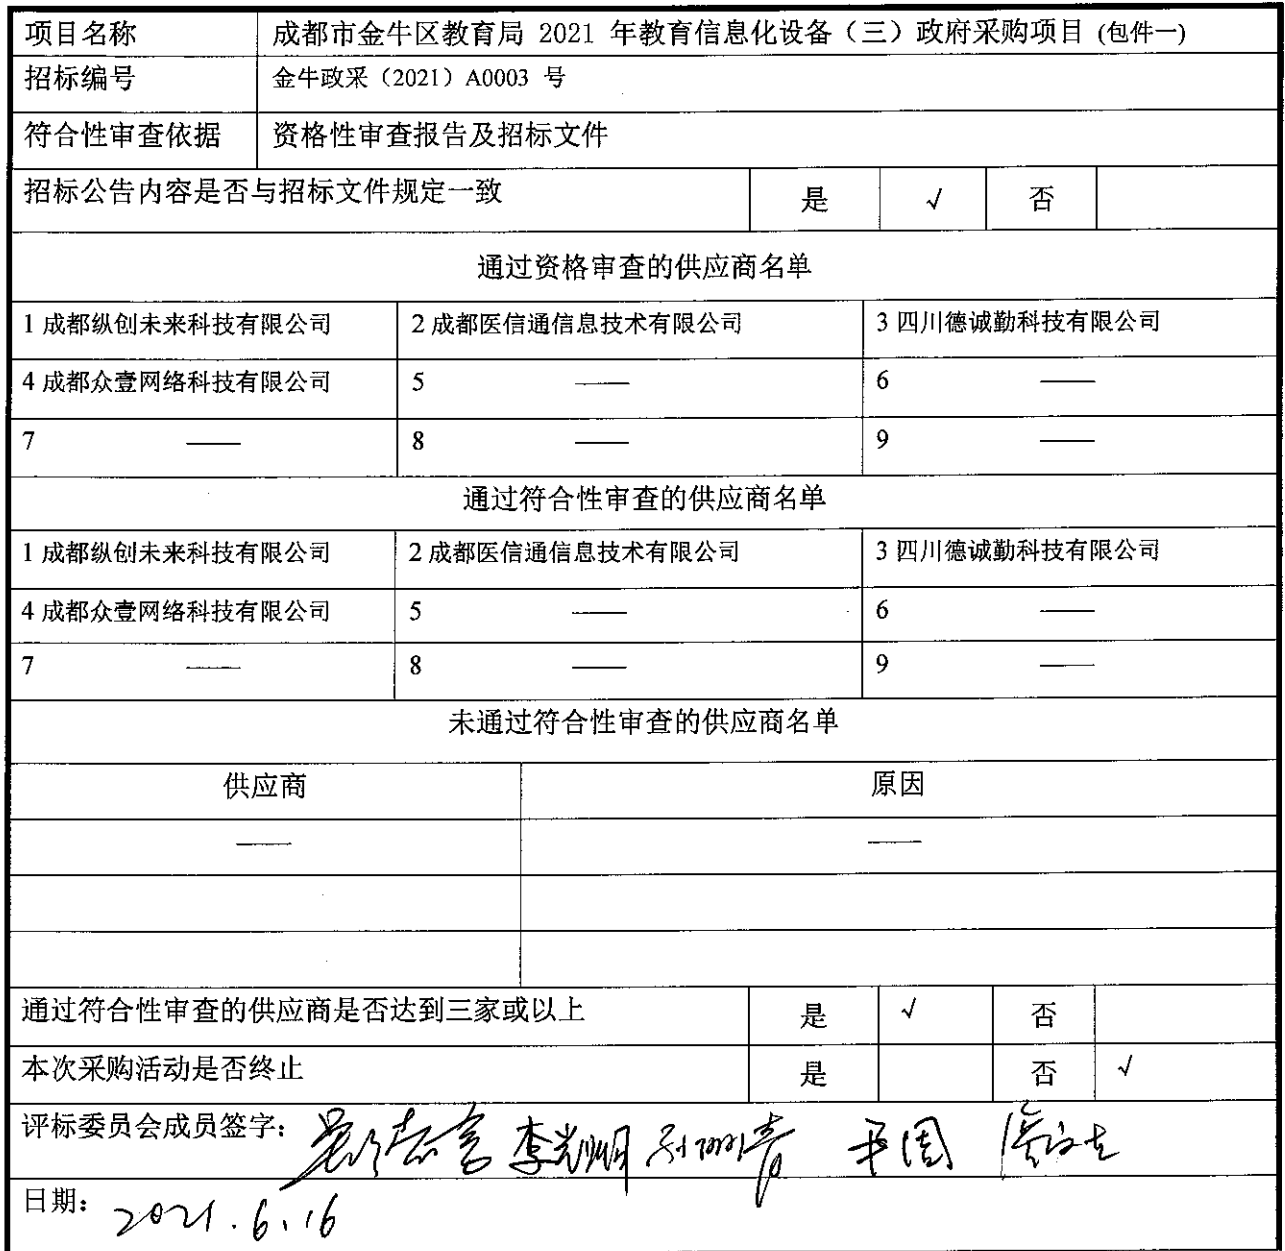 项目名称 成都市金牛区教育局 2021 年教育信息化设备（三）政府采购项目 (包件一)
招标编号 金牛政采（2021）A0003 号
符合性审查依据 资格性审查报告及招标文件
招标公告内容是否与招标文件规定一致 是 √ 否
通过资格审查的供应商名单
1 成都纵创未来科技有限公司 2 成都医信通信息技术有限公司 3 四川德诚勤科技有限公司
4 成都众壹网络科技有限公司 5 —— 6 ——
7 —— 8 —— 9 ——
通过符合性审查的供应商名单
1 成都纵创未来科技有限公司 2 成都医信通信息技术有限公司 3 四川德诚勤科技有限公司
4 成都众壹网络科技有限公司 5 —— 6 ——
7 —— 8 —— 9 ——
未通过符合性审查的供应商名单
供应商 原因
—— ——
通过符合性审查的供应商是否达到三家或以上 是 √ 否
本次采购活动是否终止 是 否 √
评标委员会成员签字： 李光明
日期： 2021.6.16